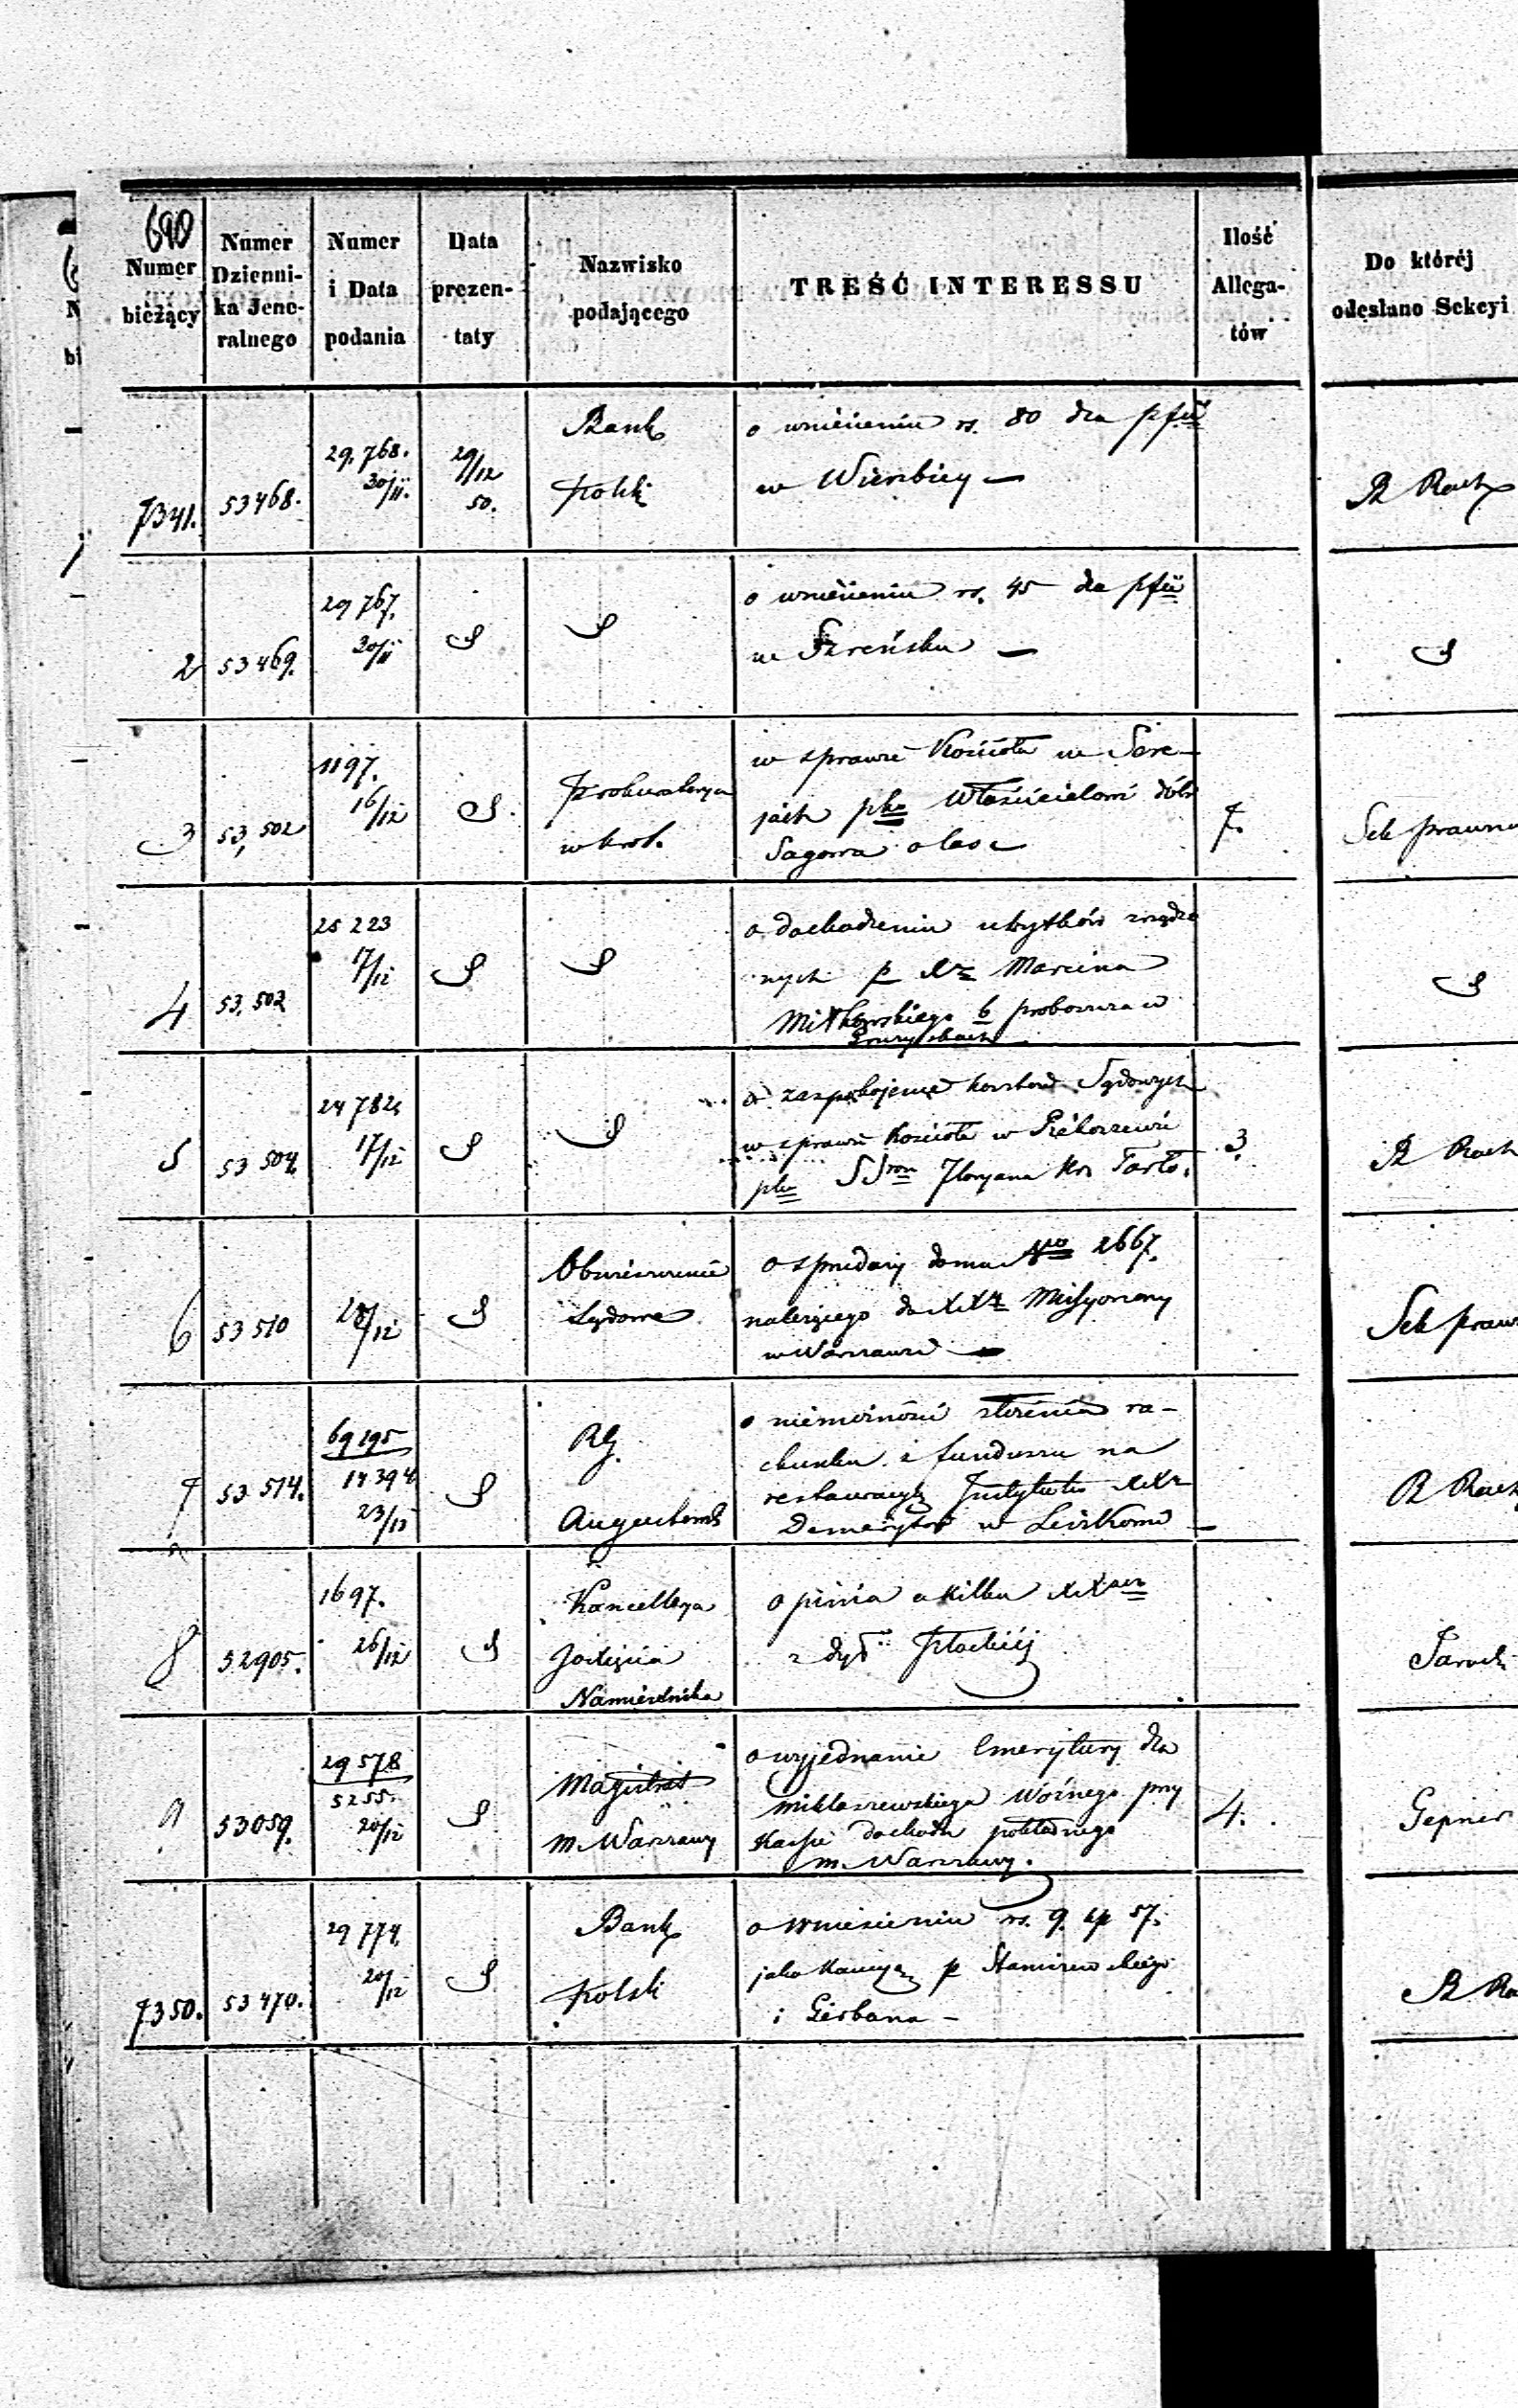 690
Numer
bieżący
Numer
Dzienni-
ka Jene-
ralnego
Numer
i Data
podania
Data
prezen-
taty
Nazwisko
podającego
TREŚĆ INTERESSU
Ilość
Allega-
tów
Do któréj
odesłano Sekcyi
7341.
53468.
29,768.
30/11.
29/12
50.
Bank
Polski
o wniesieniu rs. 80 dla
w Wierzbicy —
B Rach
2
53469.
29 767.
30/11
o wniesieniu rs. 45 dla
w Szreńsku —
3
53,502
1197.
16/12
Prokuratorya
w Król.
w sprawie Kościoła w Sere-
jach pko Właścicielowi dóbr
o las
7.
Sek prawna
4
53,503
25 223
17/12
o dochodzeniu ubytków zrządzo
nych p Xa Marcina
b proboszcza w
5
53 504.
24 782
17/12
o zaspokojenie kosztów Sądowych
w sprawie Kościoła w
pko SSrom Floryana Hr. Tarło.
3.
B Rach
6
53 510
28/12
Obwieszczenie
Sądowe
o sprzedaży domu Nro 2667.
należącego do XXy Missyonarzy
w Warszawie —
Sek praw
7
53 514.
69 195
14 394
23/12
RG.
Augustowski
o niemożności złożenia ra-
chunku z funduszu na
restauracyą Instytutu XXy
Demerytów w Liszkowie —
B Rach
8
52905.
1697.
26/12
Kancellarya
JO Xięcia
Namiestnika
opinia o kilku XXach
z dyec. Płockiéj
9
53059.
29 578
5255.
20/12
Magistrat
m. Warszawy
o wyjednanie Emerytury dla
Miklaszewskiego Woźnego przy
Kassie dochodu
m. Warszawy.
4.
Gepner
7350.
53 470.
29 774.
20/12
Bank
Polski
o wniesieniu rs. 9. kp 57.
jako kaucya p
i Gerbana —
B Ra